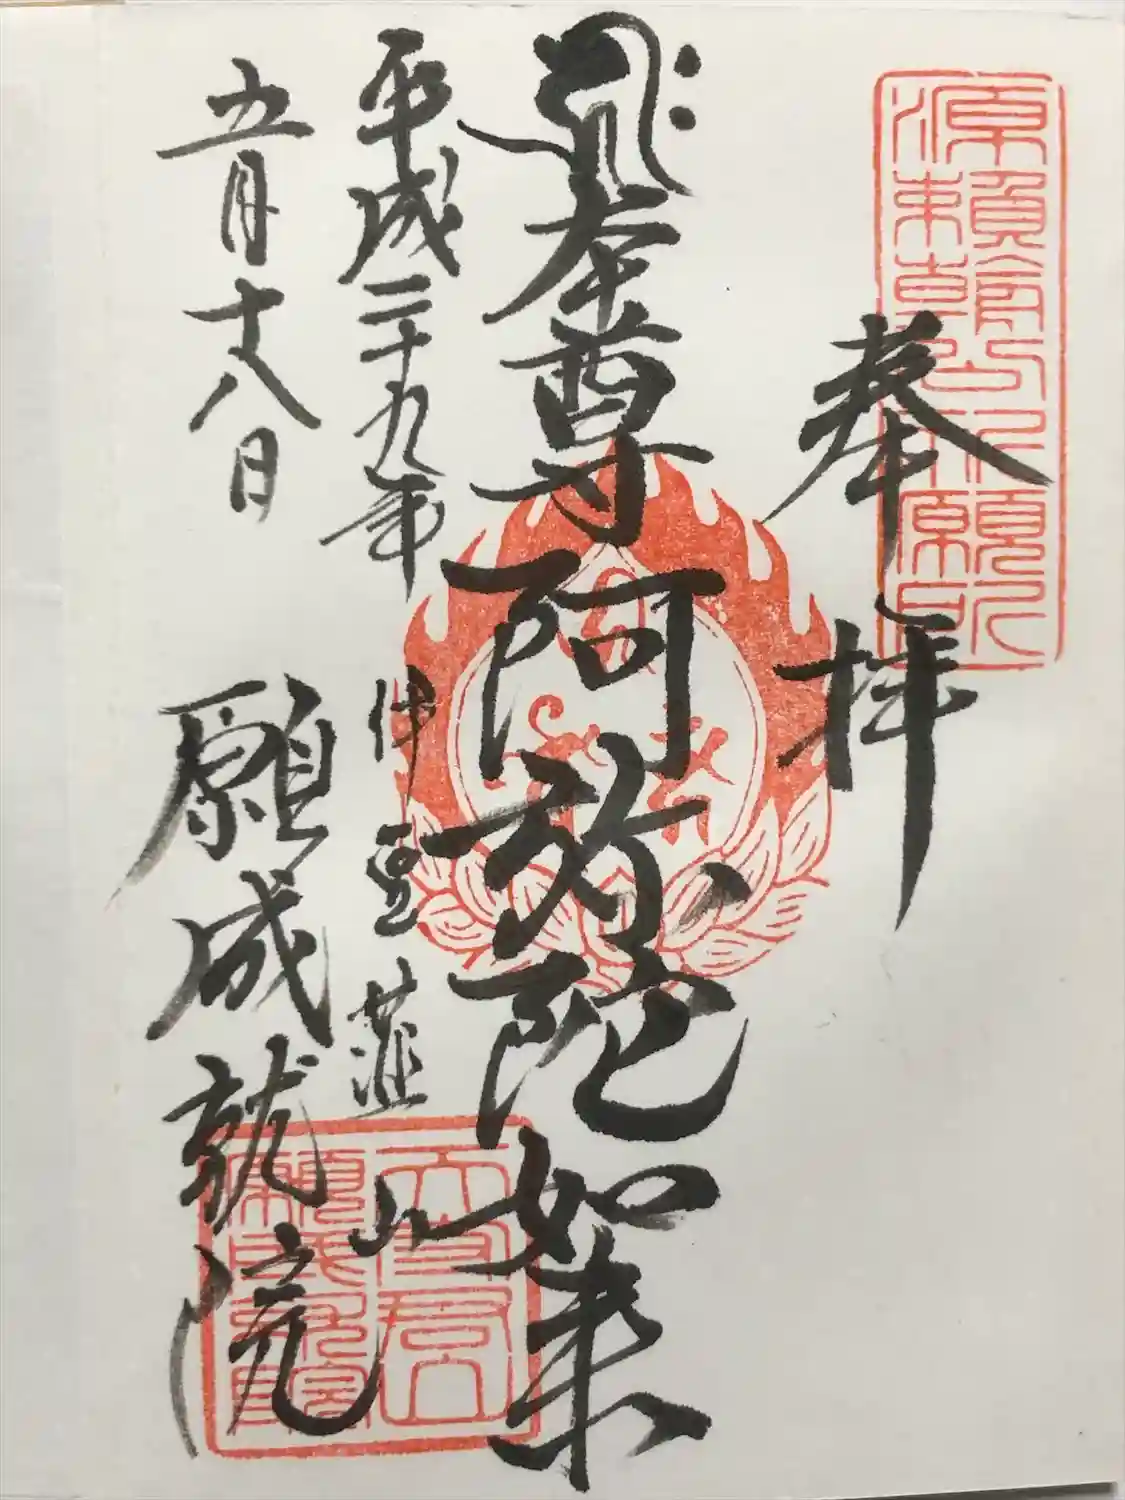 奉拝
本尊阿弥陀如来
平成二十九年
五月十八日
伊豆韮山
願成就院